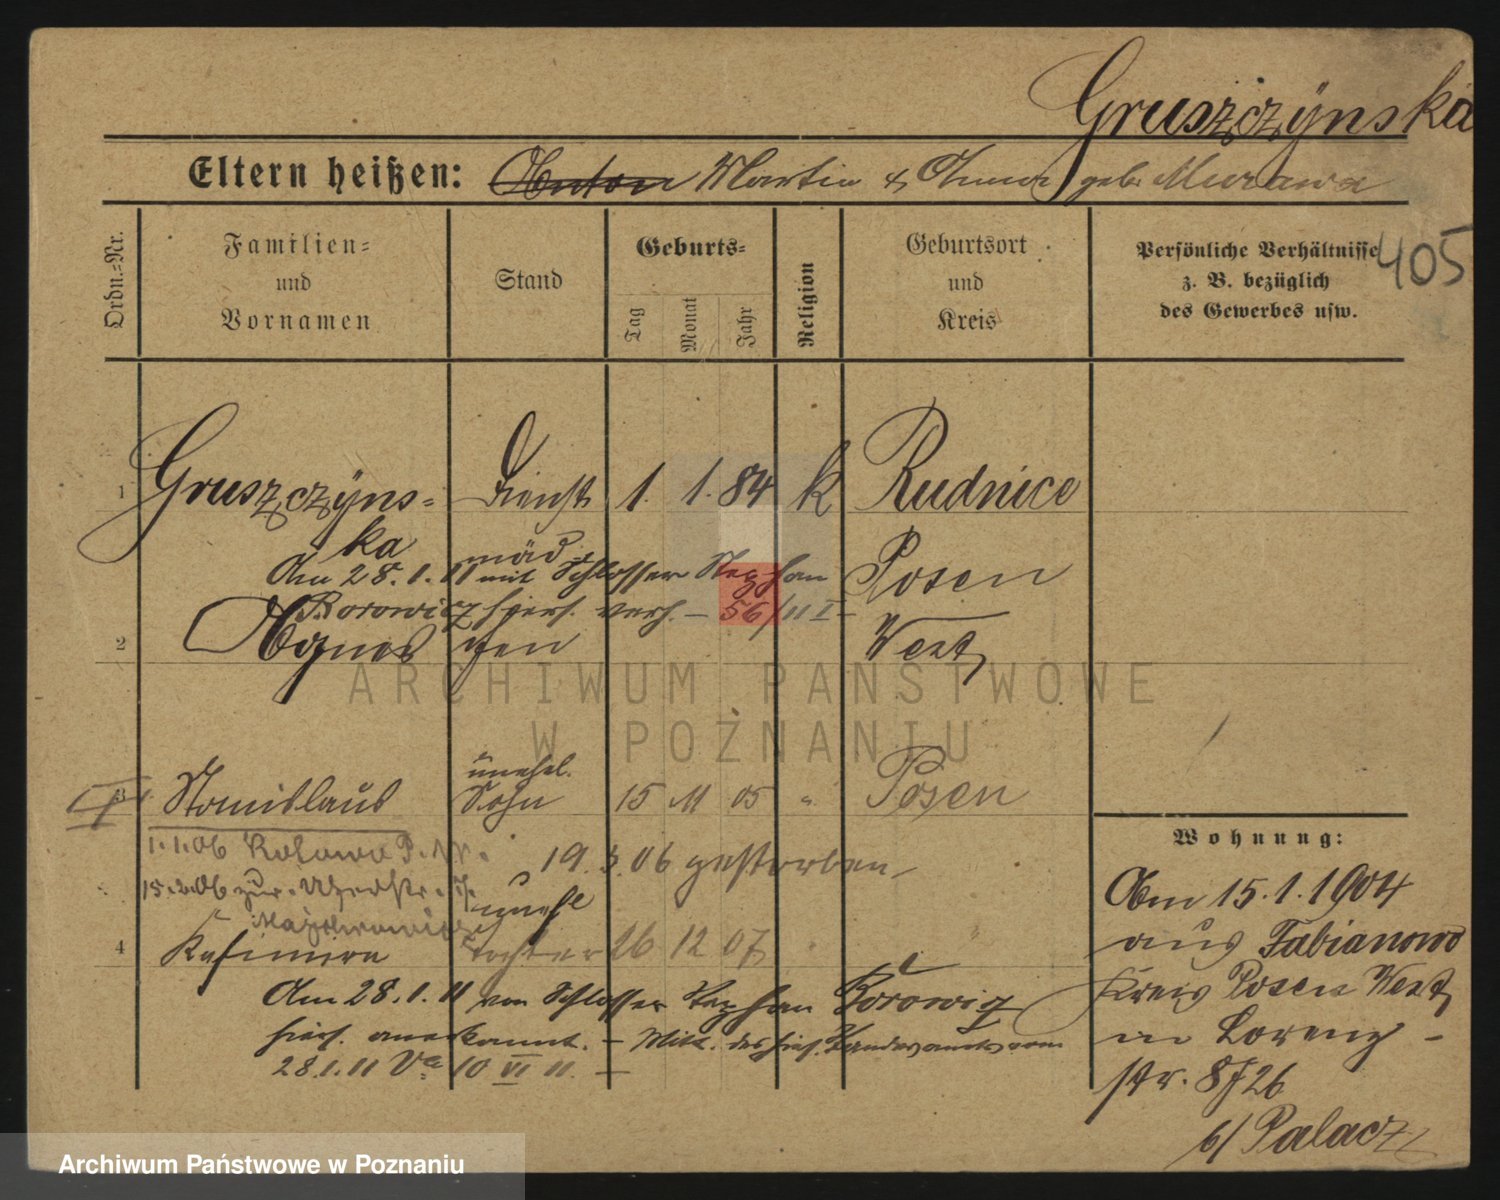 Gruszczÿnska
Eltern heißen: Anton Martin & Anna geb. Murawa
405
Ordn.-Nr.
Familien-
und
Vornamen
Stand
Geburts-
Tag
Monat
Jahr
Religion
Geburtsort
und
Kreis
Persönliche Verhältnisse
z. B. bezüglich
des Gewerbes usw.
1 Gruszczÿns- Dienst 1. 1. 84 k Rudnice
ka mäd- Posen
Am 28. 1. 11 mit Schlosser Stephan
Borowicz hiers. verh. — 56/11 I—
2 Agnes gen West
unehel.
3 Stanislaus Sohn 15 11 05 " Posen
1.1.06
19. 3. 06 gestorben
15.2.06 zur.
unehl
4 Kasimira Tochter 26 12 07 " "
Am 28. 1. 11 von Schlosser Stephan Borowicz
hiers. anerkannt. — Mitt. des hies. Standesamts vom
28.1.11 10 VI 11. —
Wohnung:
Am 15. 1. 1904
aus Fabianowo
Kreis Posen West
in Loreng-
str. 8 26
b/ Palacz
ARCHIWUM PAŃSTWOWE
W POZNANIU
Archiwum Państwowe w Poznaniu